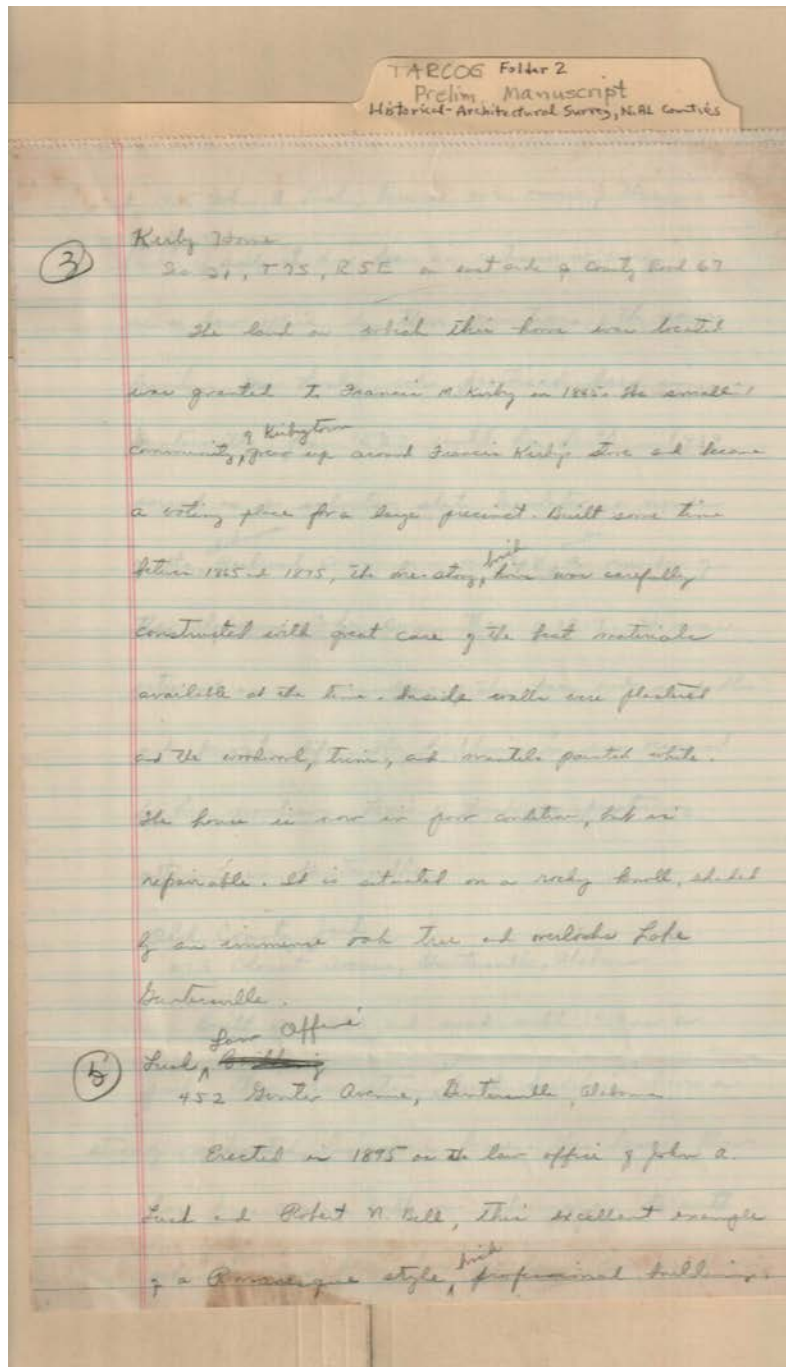 TARCOG Folder 2
Prelim Manuscript
Historical-Architectural Survey, N. AL Counties
3
Kirby Home
T7S, R5E on east side of County Road 67
The land on which this home was located
was granted to Francis M. Kirby in 1865. The small
community, of Kirbytown grew up around Francis Kirby's store and became
a voting place for a large precinct. Built some time
between 1865 and 1875, the one-story, brick home was carefully
constructed with great care of the best materials
available at the time. Inside walls were plastered
and the woodwork, trim, and mantels painted white.
The house is now in poor condition, but is
repairable. It is situated on a rocky knoll, shaded
by an immense oak tree and overlooks Lake
Guntersville.
5
Lusk Law Office
452 Gunter Avenue, Guntersville, Alabama
Erected in 1895 as the law office of John A.
Lusk and Robert N. Bell, this excellent example
of a Romanesque style, brick professional building.